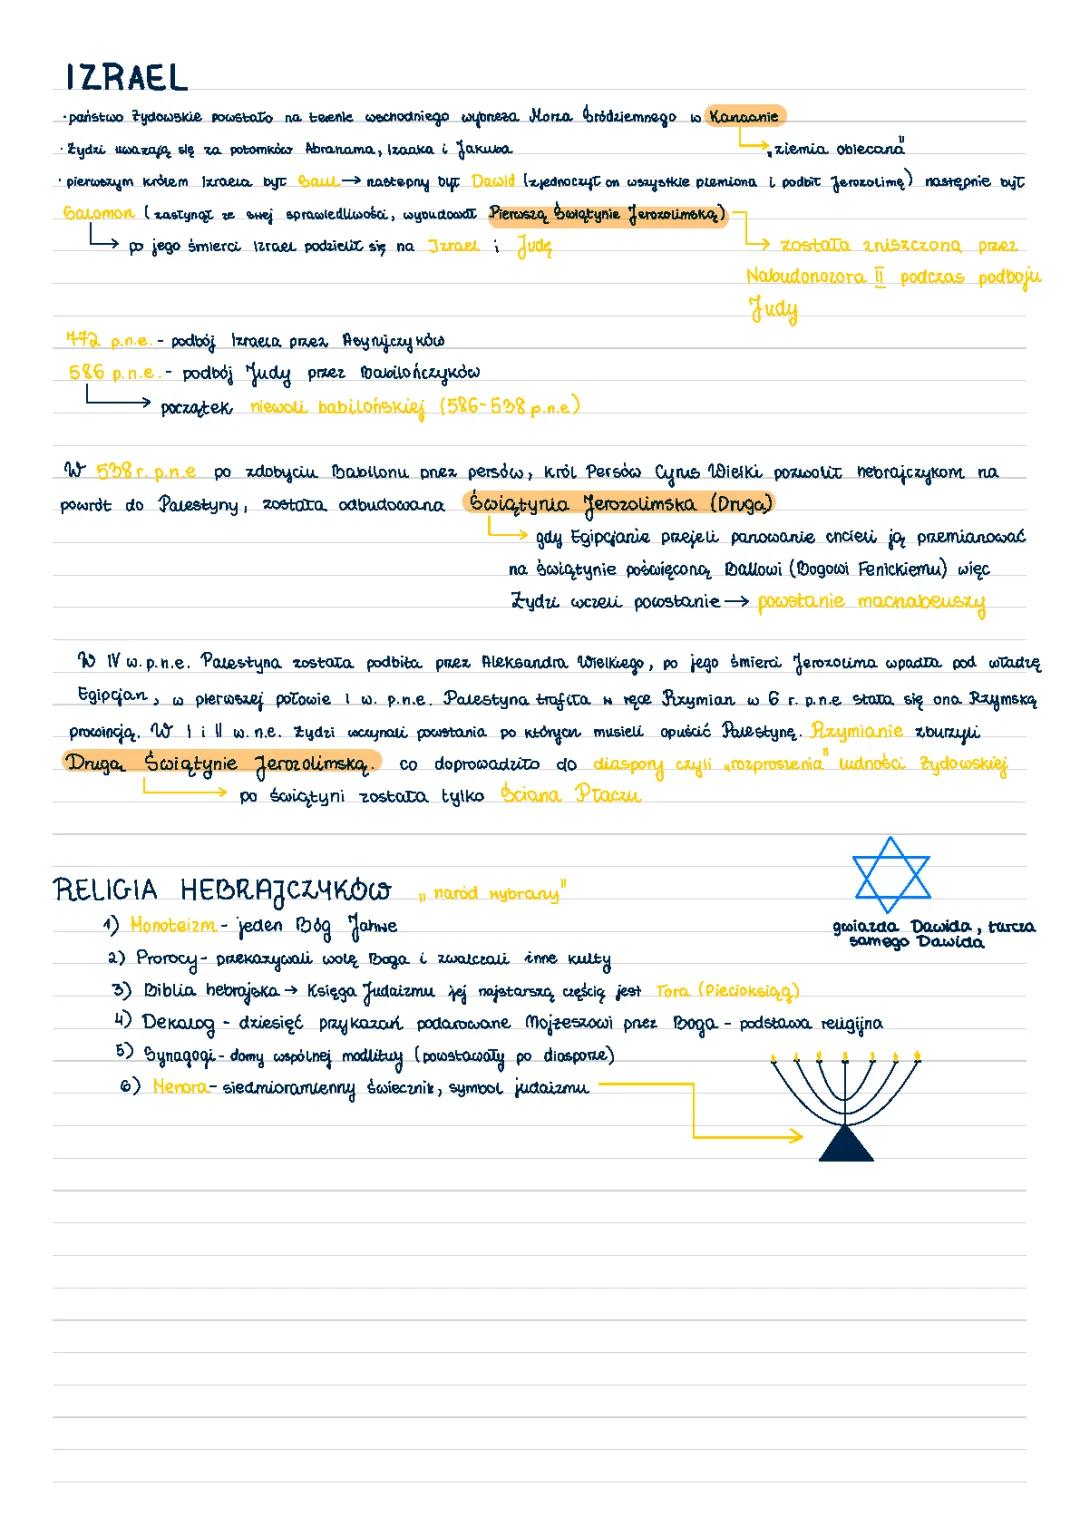 IZRAEL
· państwo żydowskie powstało na terenie wschodniego wybrzeża Morza Śródziemnego w Kanaanie
· Żydzi uważają się za potomków Abrahama, Izaaka i Jakuba
„ziemia obiecana"
· pierwszym królem Izraela był Saul → następny był Dawid (zjednoczył on wszystkie plemiona i podbił Jerozolimę) następnie był
Salomon (zasłynął ze swej sprawiedliwości, wybudował Pierwszą Świątynie Jerozolimską)
→ po jego śmierci Izrael podzielił się na Izrael i Judę
→ została zniszczona przez
Nabudonozora II podczas podboju
Judy
772 p.n.e. - podbój Izraela przez Asyryjczyków
586 p.n.e. - podbój Judy przez Babilończyków
→ początek niewoli babilońskiej (586-538 p.n.e)
W 538 r. p.n.e po zdobyciu Babilonu przez persów, król Persów Cyrus Wielki pozwolił hebrajczykom na
powrót do Palestyny, została odbudowana Świątynia Jerozolimska (Druga)
→ gdy Egipcjanie przejeli panowanie chcieli ją przemianować
na świątynie poświęconą Ballowi (Bogowi Fenickiemu) więc
Żydzi wczeli powstanie → powstanie machabeuszy
W IV w. p.n.e. Palestyna została podbita przez Aleksandra Wielkiego, po jego śmierci Jerozolima wpadła pod władzę
Egipcjan, w pierwszej połowie I w. p.n.e. Palestyna trafiła w ręce Rzymian w 6 r. p.n.e stała się ona Rzymską
prowincją. W I i II w. n.e. żydzi wczynali powstania po których musieli opuścić Palestynę. Rzymianie zburzyli
Drugą Świątynie Jerozolimską. co doprowadziło do diaspory czyli „rozproszenia" ludności żydowskiej
→ po świątyni została tylko Ściana Płaczu
RELIGIA HEBRAJCZYKÓW „naród wybrany"
1) Monoteizm - jeden Bóg Jahwe
gwiazda Dawida, tarcza
samego Dawida
2) Prorocy - przekazywali wolę Boga i zwalczali inne kulty
3) Biblia hebrajska → Księga Judaizmu jej najstarszą częścią jest Tora (Piecioksiąg)
4) Dekalog - dziesięć przykazań podarowane Mojżeszowi przez Boga - podstawa religijna
5) Synagogi - domy wspólnej modlitwy (powstawały po diasporze)
6) Menora - siedmioramienny świecznik, symbol judaizmu